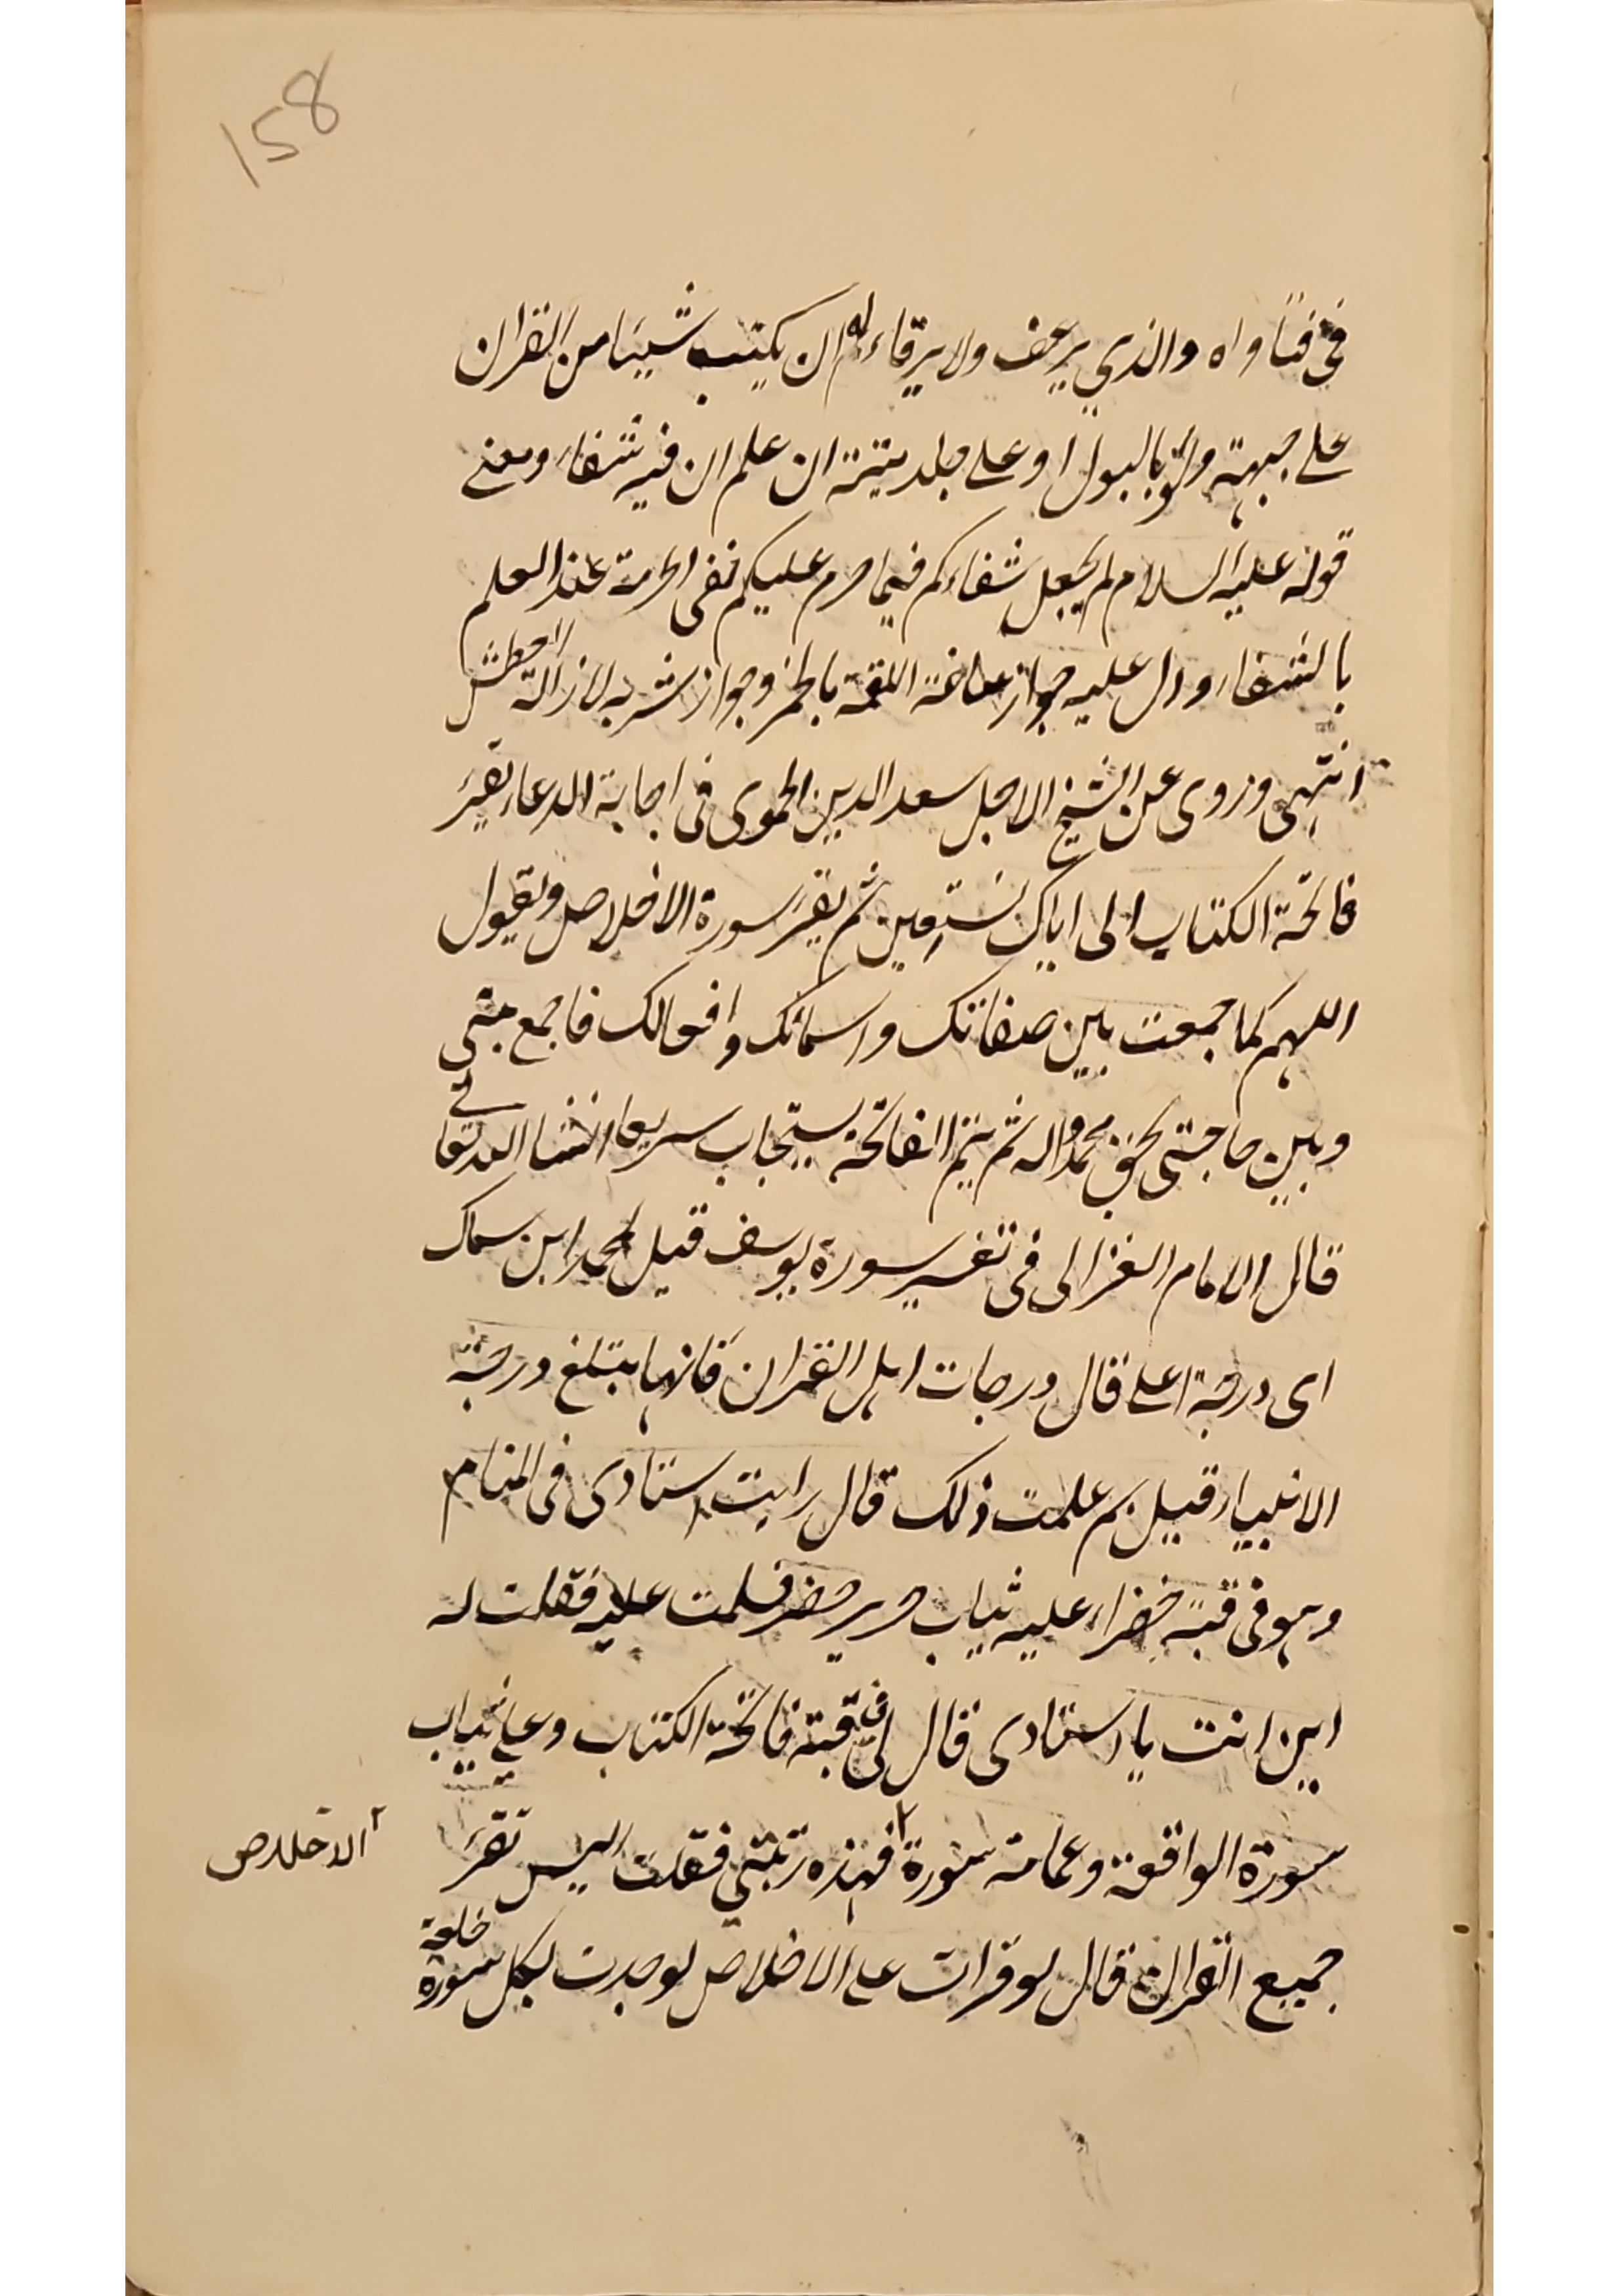 158
في فتاواه والذي يرعف ولا يرقاء له ان يكتب شيئا من القران
على جبهته ولو بالبول او على جلد ميتة ان علم ان فيه شفاء ومعنى
قوله عليه السلام لم يجعل شفاءكم فيما حرم عليكم نفى الحرمة عند العلم
بالشفاء ودل عليه جواز اللقمة بالخمر وجواز شربه لازالة العطش
انتهى وروى عن الشيخ الاجل سعد الدين الحموى فى اجابة الدعاء يقرء
فاتحة الكتاب الى اياك نستعين ثم يقرء سورة الاخلاص ويقول
اللهم كما جمعت بين صفاتك واسمائك وافعالك فاجمع بينى
وبين حاجتى بحق محمد واله ثم يتم الفاتحة يستجاب سريعا انشا الله تعالى
قال الامام الغزالى فى تفسير سورة يوسف قيل لمحمد ابن سماك
اى درجة اعلى قال درجات اهل القران فانها تبلغ درجة
الانبياء قيل بم علمت ذلك قال رايت استادى فى المنام
وهو فى قبة خضراء عليه ثياب حرير خضر فسلمت عليه فقلت له
اين انت يا استادى قال لى فى قبة فاتحة الكتاب وعلى ثياب
سورة الواقعة وعمامة سورة فهذه رتبتي فقلت اليس تقرء
الاخلاص
جميع القران قال لو قرات على الاخلاص لوجدت لكل سورة خلعة